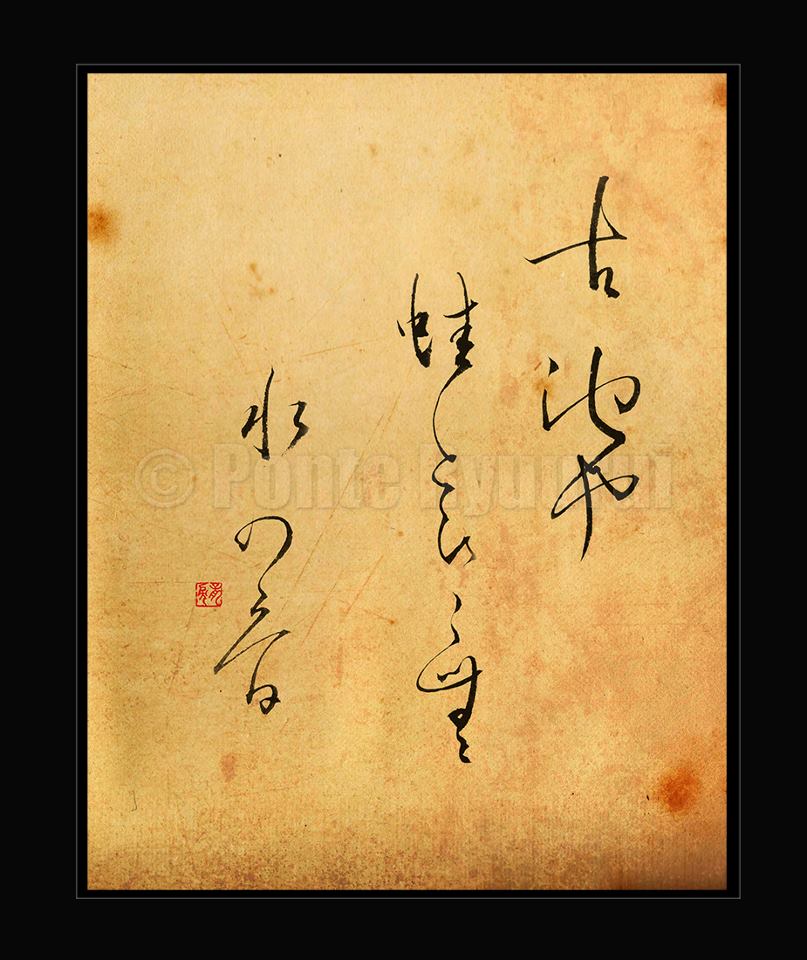 古池や
蛙とひこ無
水の音
© Ponte Ryuurui